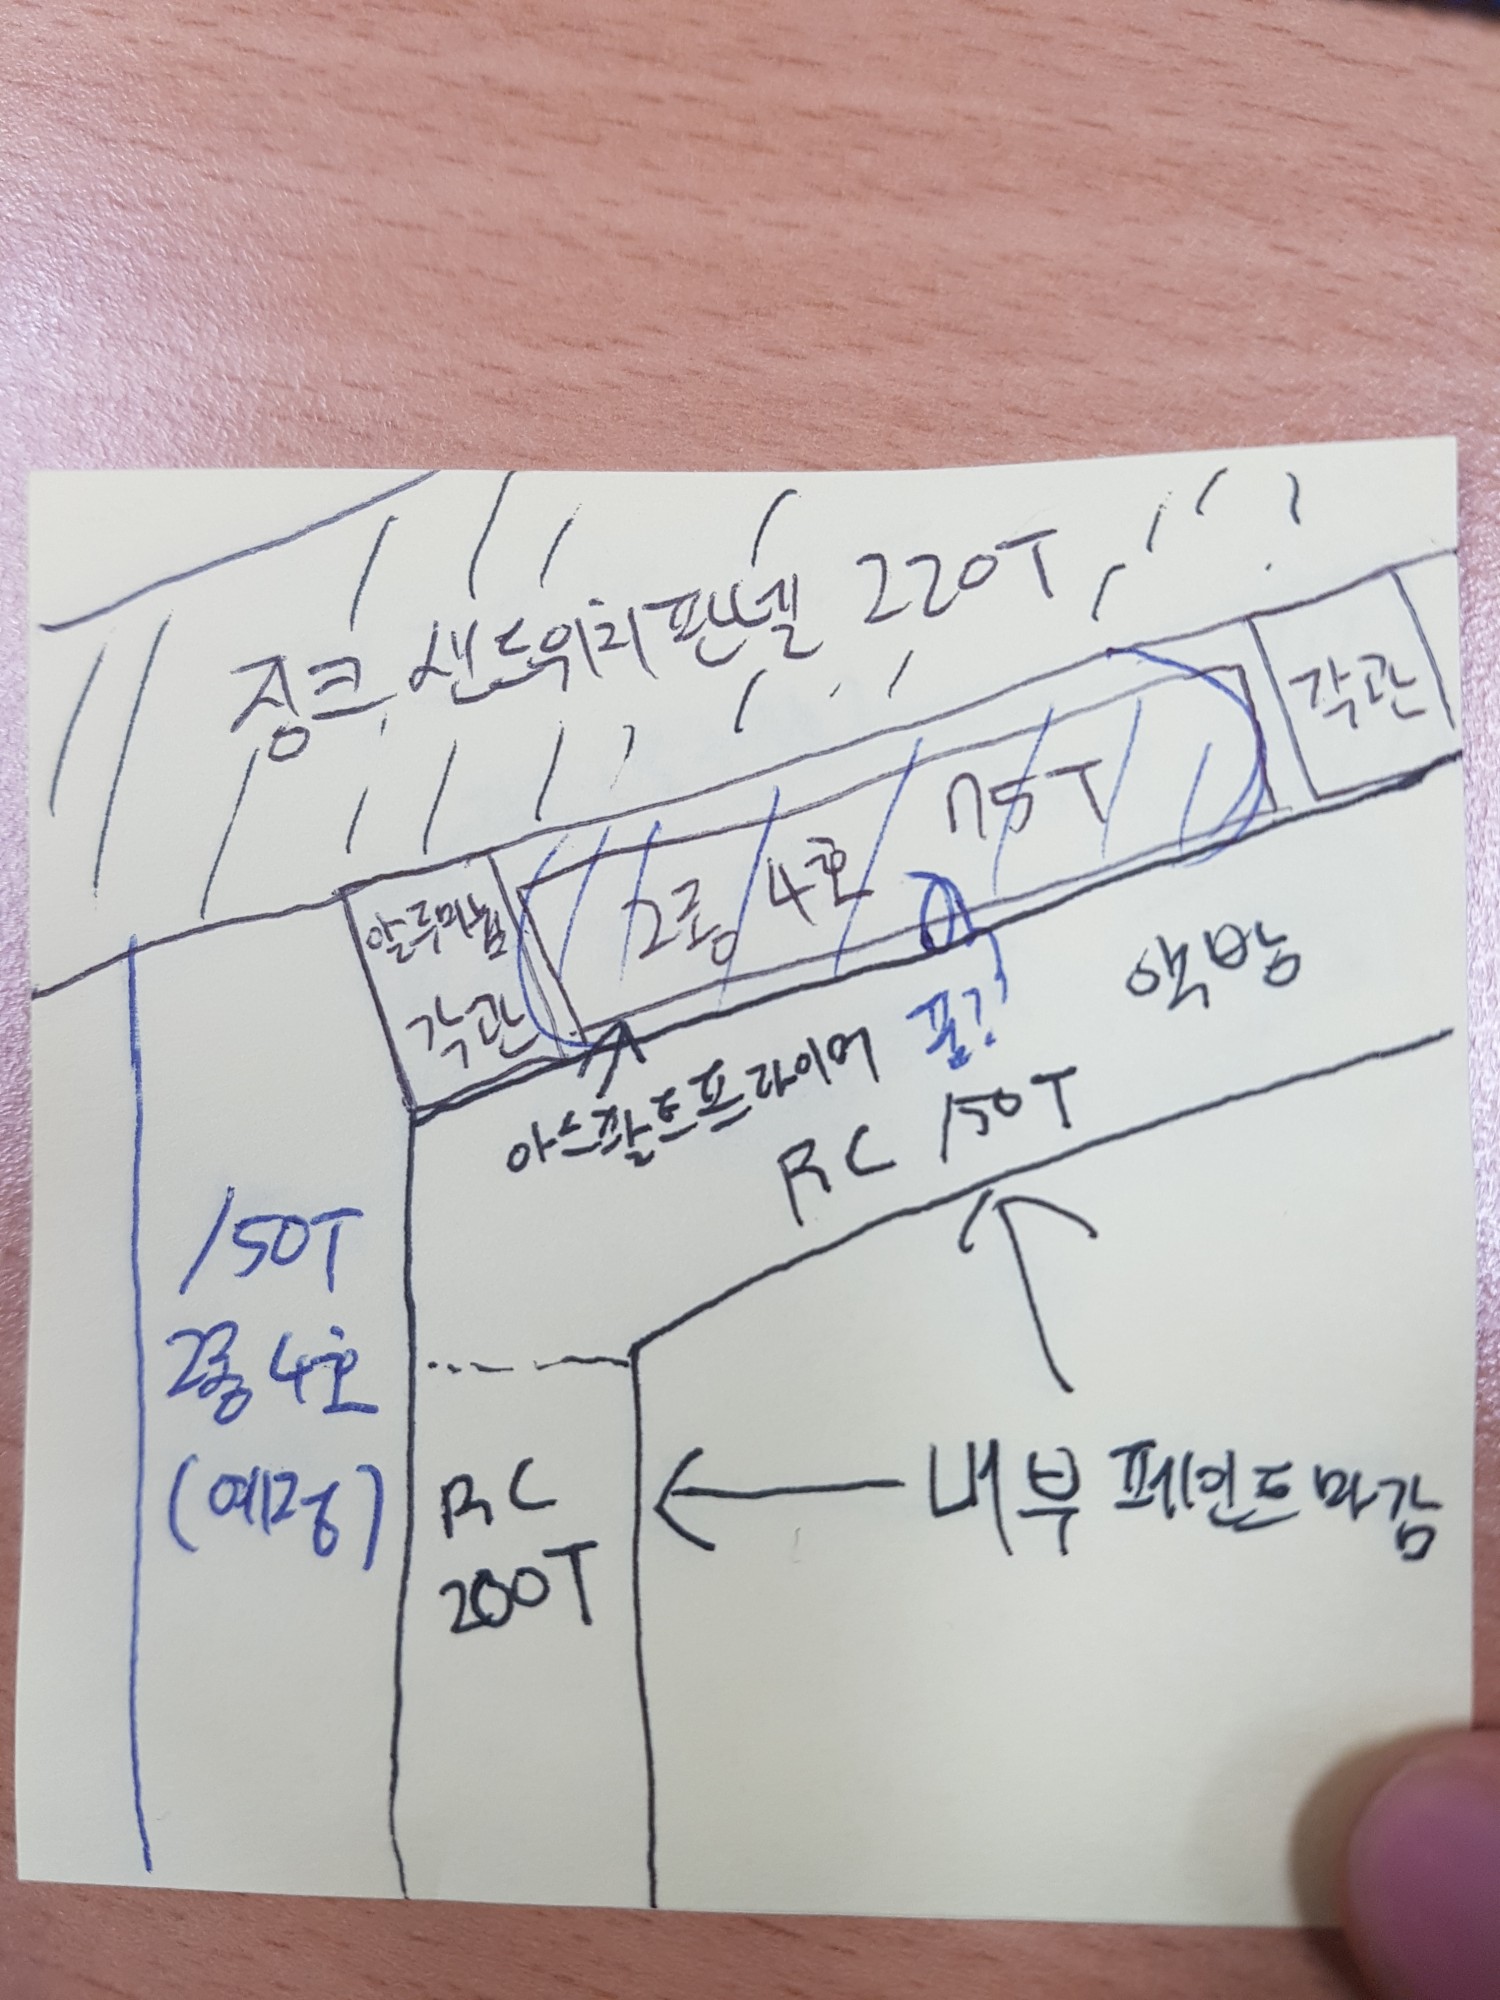 징크 샌드위치판넬 220T
각관
75T
2종 4호
알루미늄
각관
액방
아스팔트프라이머 폼??
RC 150T
150T
2종 4호
(예정)
RC
200T
내부 페인트마감